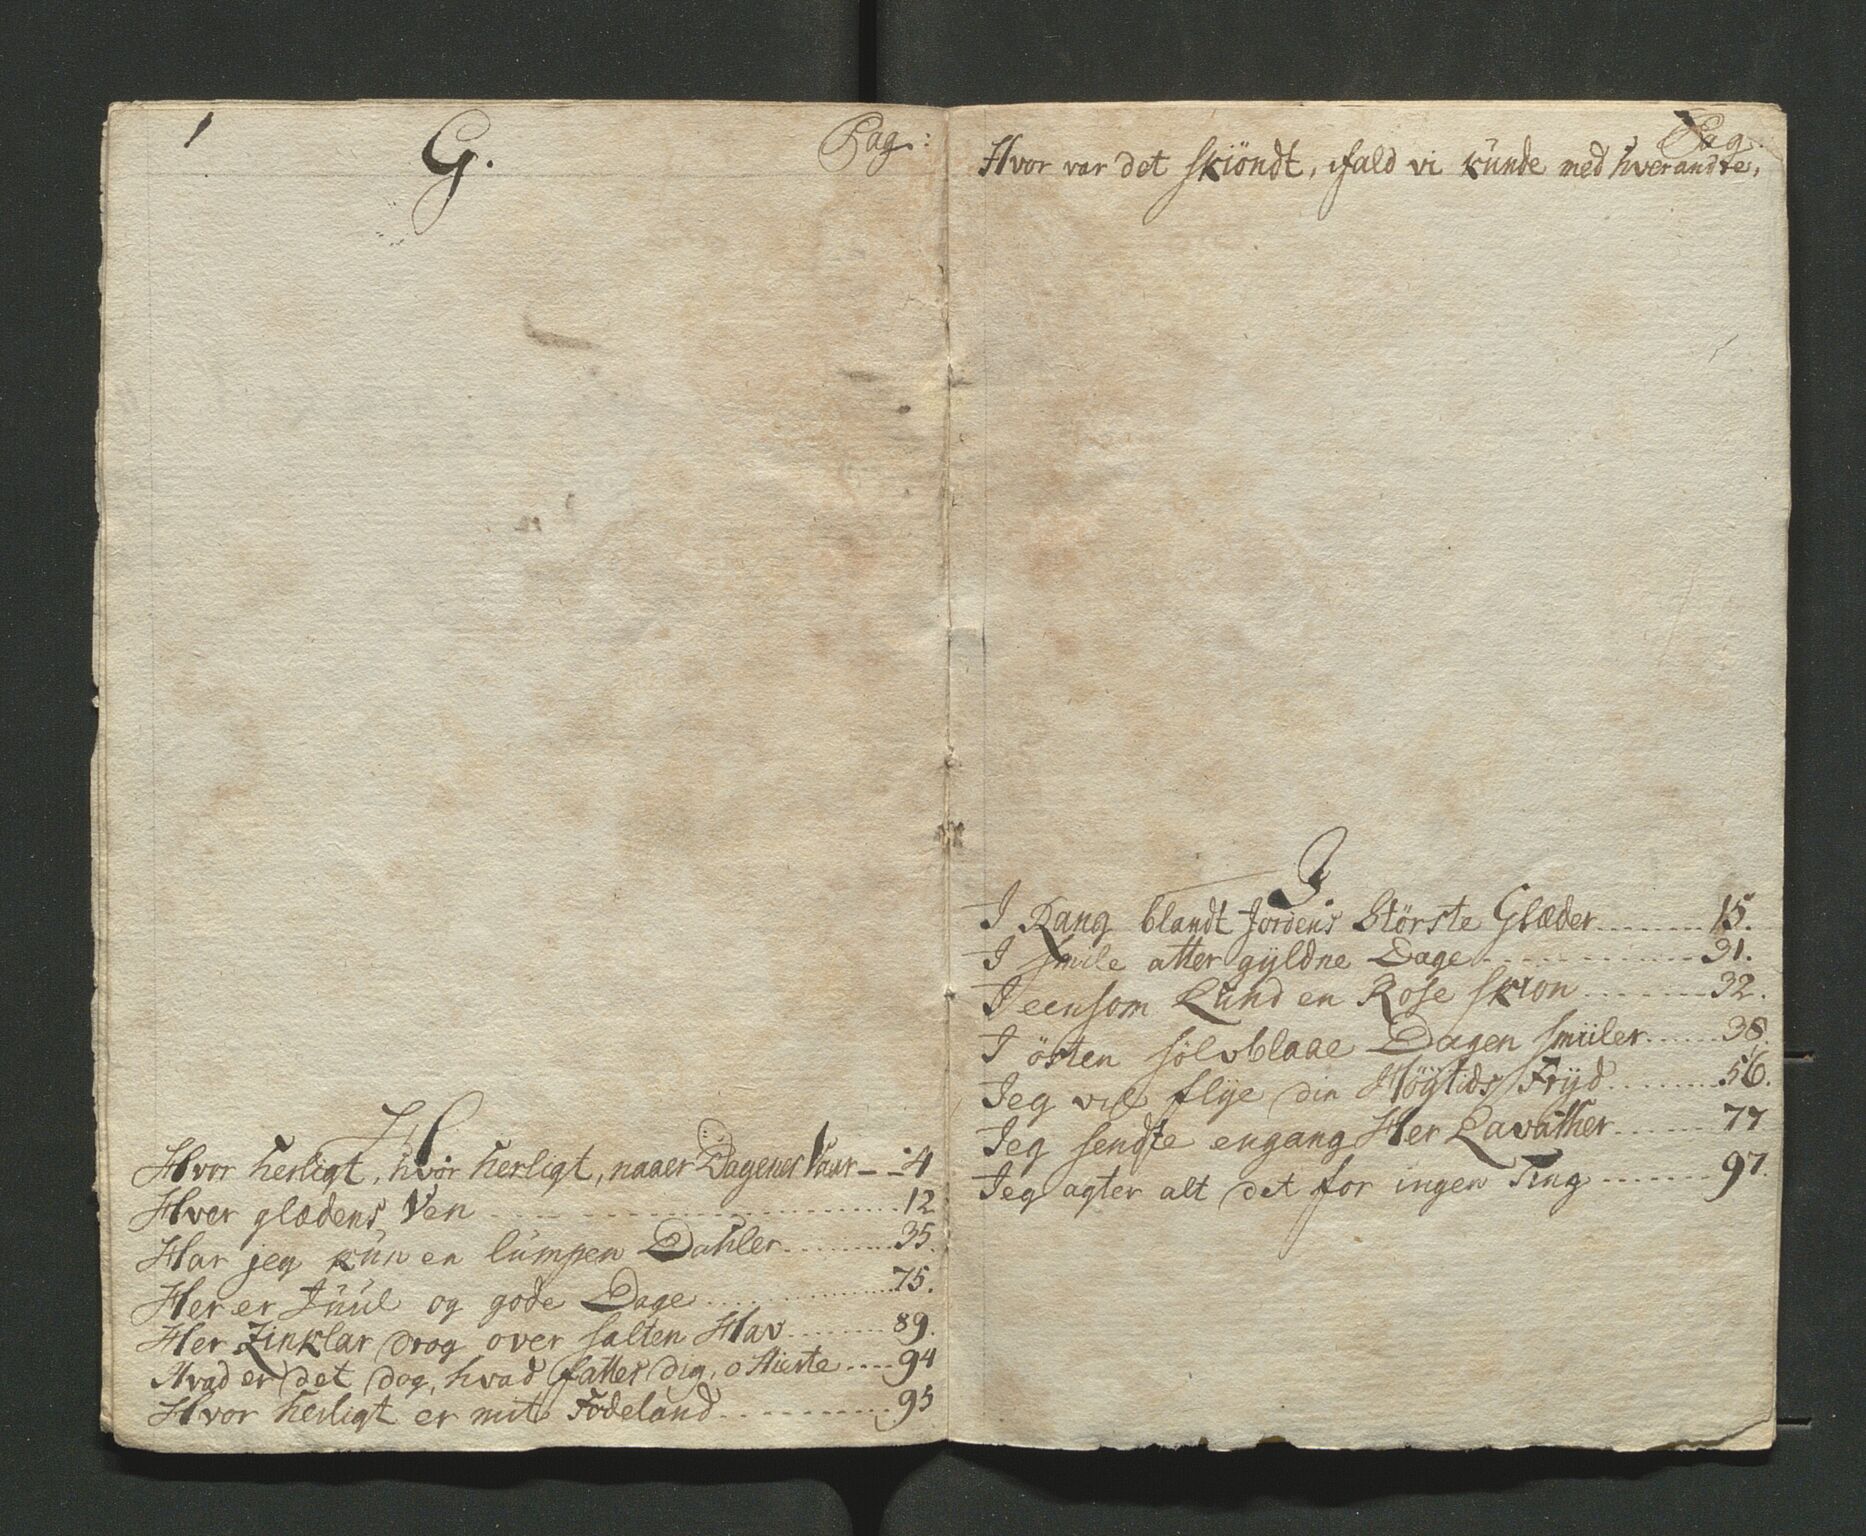 G. Pag:
H
Hvor herligt, hvor herligt, naaer Dagenes Vaar 4
Hver glædens Ven 12
Har jeg kun en lumpen Dahler 35.
Her er Juul og gode Dage 75.
Her Zinklar drog over salten Hav 89.
Hvad er det dog, hvad fattes dig, o Hierte 94
Hvor herligt er mit Födeland 95
Pag:
Hvor var det skiöndt, ifald vi kunde med hverandre,
I
I Rang blandt Jordens Störste Glæder 15.
I smile atter gyldne Dage 31.
I eensom Lund en Rose skiön 32.
I östen sölvblaae Dagen smiiler 38.
Jeg vil flye din Höytids Fryd 56.
Jeg sendte engang Her Lavather 77
Jeg agter alt det for ingen Ting 97.